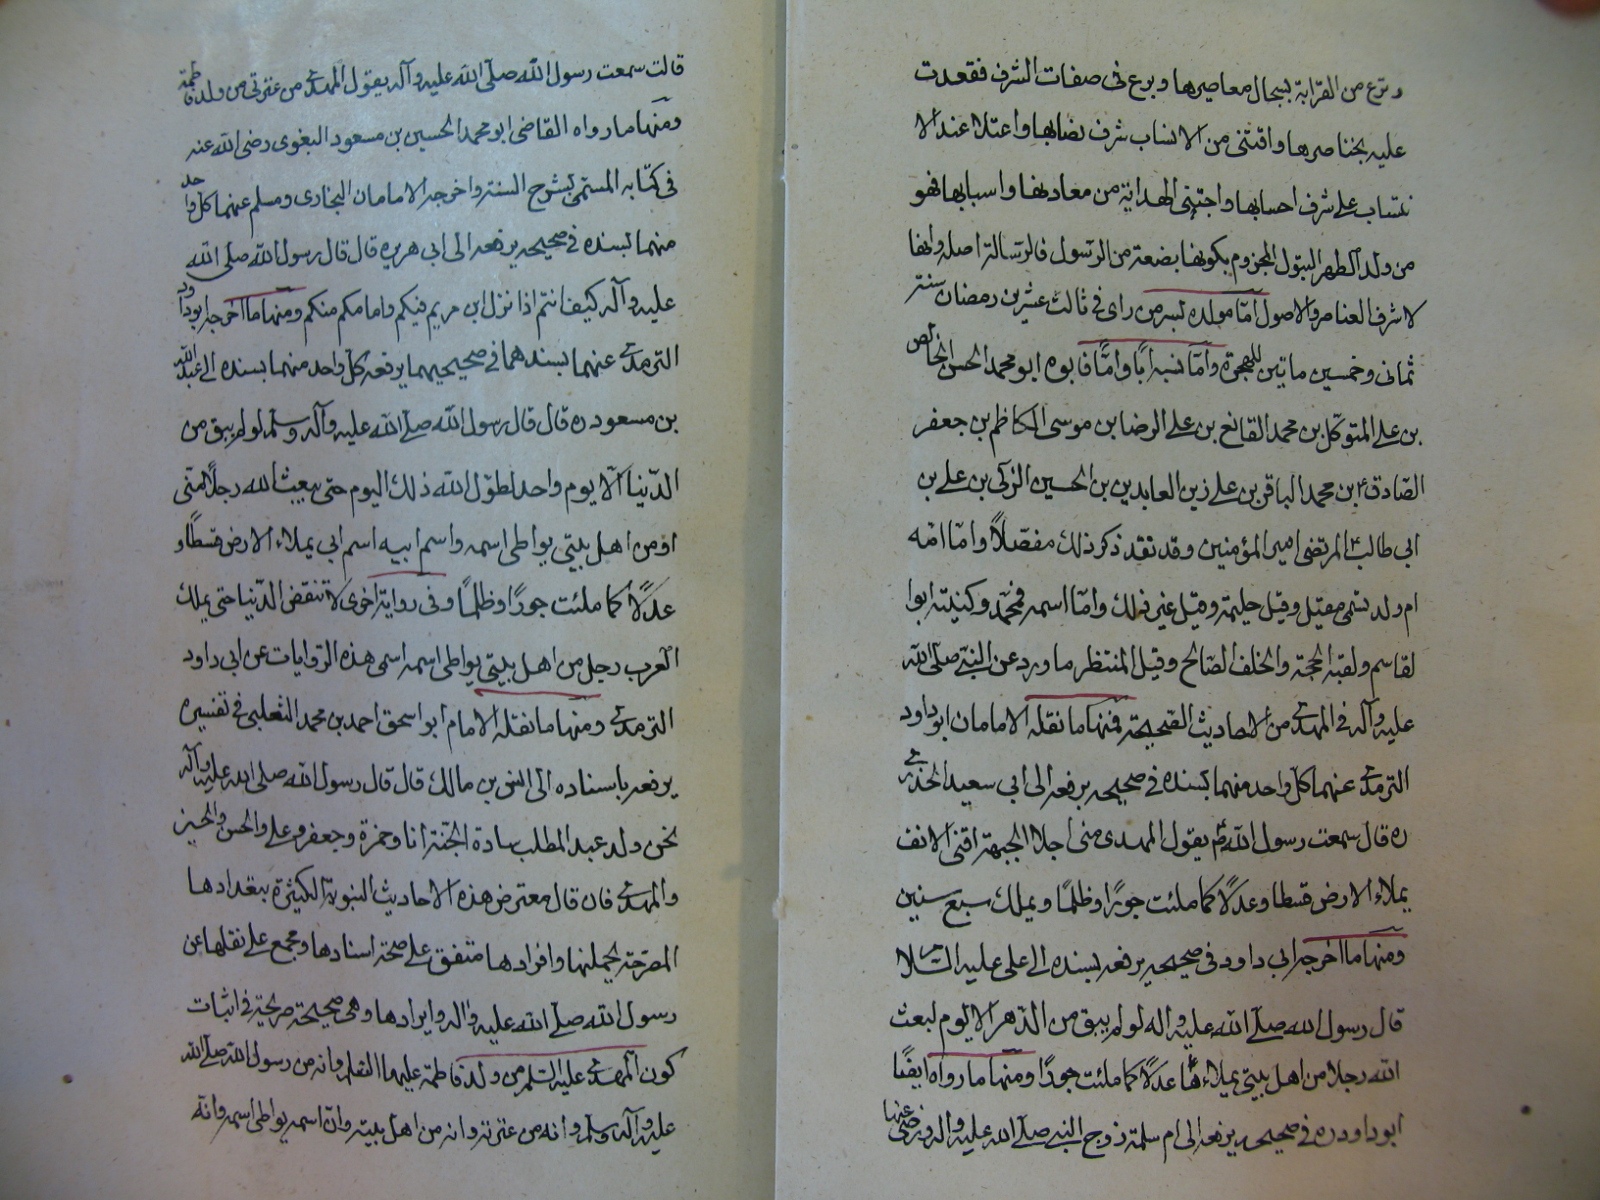 ونزع من القرابة بسجال معاصرها وبرع فی صفات الشرف فقعدت
علیه بخناصرها واقتنی من الانساب شرف نصابها واعتلا عند الا
نتساب علی شرف احسابها واجتنی الهدایة من معادنها واسبابها فهو
من ولد الطهر البتول المجزوم بکونها بضعة من الرسول فالرسالة اصله وانها
لاشرف العناصر والاصول امّا مولده بسر من رای فی ثالث عشرین رمضان سنة
ثمانی وخمسین ماتین للهجرة وامّا نسبه ابًا وامًّا فابوه ابو محمد الحسن الخالص
بن علی المتوکل بن محمد القانع بن علی الرضا بن موسی الکاظم بن جعفر
الصّادق ابن محمد الباقر بن علی زین العابدین بن الحسین الزکی بن علی بن
ابی طالب المرتضی امیر المؤمنین وقد تقد ذکر ذلك مفصّلًا وامّا امّه
ام ولد تسمی صقیل وقیل حلیمة وقیل غیر ذلك وامّا اسمه فمحمّد وکنیته ابوا
لقاسم ولقبه الحجّة والخلف الصّالح وقیل المنتظر ما ورد عن النبی صلّی اللّه
علیه وآله فی المهدی من الاحادیث الصّحیحة فمنها ما نقله الامامان ابو داود
الترمذی عنهما کلّ واحد منهما بسنده فی صحیحه یرفعه الی ابی سعید الخذری
ره قال سمعت رسول اللّه یقول المهدی منی اجلا الجبهة اقنی الانف
یملاء الارض قسطا وعدلًا کما ملئت جورًا وظلمًا ویملك سبع سنین
ومنها ما اخرجه ابی داود فی صحیحه یرفعه بسنده الی علی علیه السّلام
قال رسول اللّه صلّی اللّه علیه واله لو لم یبق من الدّهر الّا یوم لبعث
اللّه رجلا من اهل بیتی یملاءها عدلًا کما ملئت جورًا ومنها ما رواه ایضًا
ابو داود ره فی صحیحه یرفعه الی ام سلمة زوج النبی صلّی اللّه علیه واله ورضی عنها
قالت سمعت رسول اللّه صلّی اللّه علیه وآله یقول المهدی من عترتی من ولد فاطمة
ومنها ما رواه القاضی ابو محمد الحسین بن مسعود البغوی رضی اللّه عنه
فی کتابه المسمّی بشرح السنة واخرجه الامامان البخاری ومسلم عنهما کل واحد
منهما بسنده فی صحیحه یرفعه الی ابی هریره قال قال رسول اللّه صلّی اللّه
علیه وآله کیف انتم اذا نزل ابن مریم فیکم وامامکم منکم ومنها ما اخرجه ابو داود
الترمذی عنهما بسندهما فی صحیحیهما یرفعه کلّ واحد منهما بسنده الی عبد اللّه
بن مسعود ره قال قال رسول اللّه صلّی اللّه علیه وآله وسلّم لو لم یبق من
الدّنیا الّا یوم واحد لطوّل اللّه ذلك الیوم حتی یبعث اللّه رجلًا منّی
او من اهل بیتی یواطی اسمه واسم ابیه اسم ابی یملاء الارض قسطًا و
عدلًا کما ملئت جورًا وظلمًا وفی روایة اخری لا تنقض الدّنیا حتی یملك
العرب رجل من اهل بیتی یواطی اسمه اسمی هذه الرّوایات عن ابی داود
الترمذی ومنها ما نقله الامام ابو اسحق احمد بن محمد الثعلبی فی تفسیره
یرفعه باسناده الی انس بن مالك قال قال رسول اللّه صلی اللّه علیه وآله
نحن ولد عبد المطلب سادة الجنّة انا وحمزة وجعفر وعلی والحسن والحسین
والمهدی فان قال معترض هذه الاحادیث النبویة الکثیرة بتعدادها
المصرّحة بجملتها وافرادها متفق علی صحّة اسنادها ومجمع علی نقلها عن
رسول اللّه صلّی اللّه علیه واله وایرادها وهی صحیحة صریحة فی اثبات
کون المهدی علیه السّلم من ولد فاطمة علیهما السّلم وانه من رسول اللّه صلّی اللّه
علیه وآله وسلم وانه من عترته وانه من اهل بیته وانّ اسمه یواطی اسمه وانّه